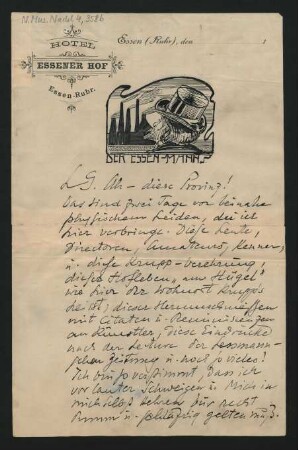 N. Mus. Nachl. 4, 3586
HOTEL
ESSENER HOF
Essen-Ruhr.
Essen (Ruhr), den
DER ESSEN-MANN
L G. Ah – diese Provinz!
Das sind zwei Tage von beinahe
physischem Leiden, die ich
hier verbringe. Diese Leute,
Directoren, Amateure, Kenner,
u. diese Krupp-Verehrung,
dieses Hofleben, "am Hügel"
wie hier der Wohnort Krupps
heißt; dieses
mit Citaten u. Reminiszenzen
an Künstler, diese Eindrücke
nach der Lektüre der
schen Zeitung u. noch so vieles!
Ich bin so verstimmt, dass ich
vor lauter Schweigen u. Mich in
mich für recht
dumm u. gelten muß.